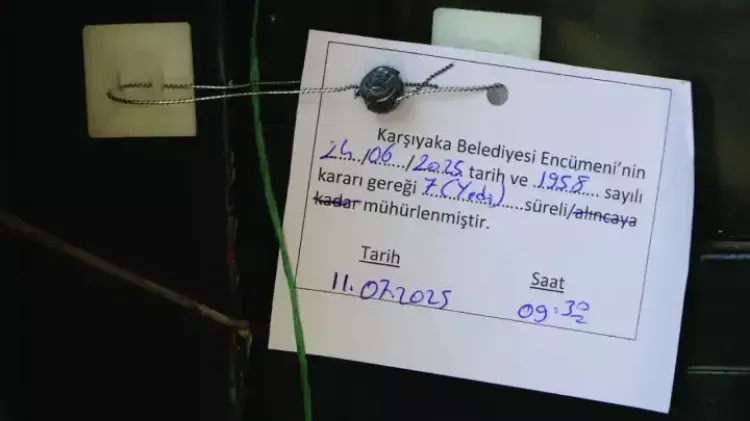 Karşıyaka Belediyesi Encümeni'nin
24/06/2025 tarih ve 1958 sayılı
kararı gereği 7 (Yedi) süreli/alıncaya
kadar mühürlenmiştir.
Tarih Saat
11.07.2025 09:30